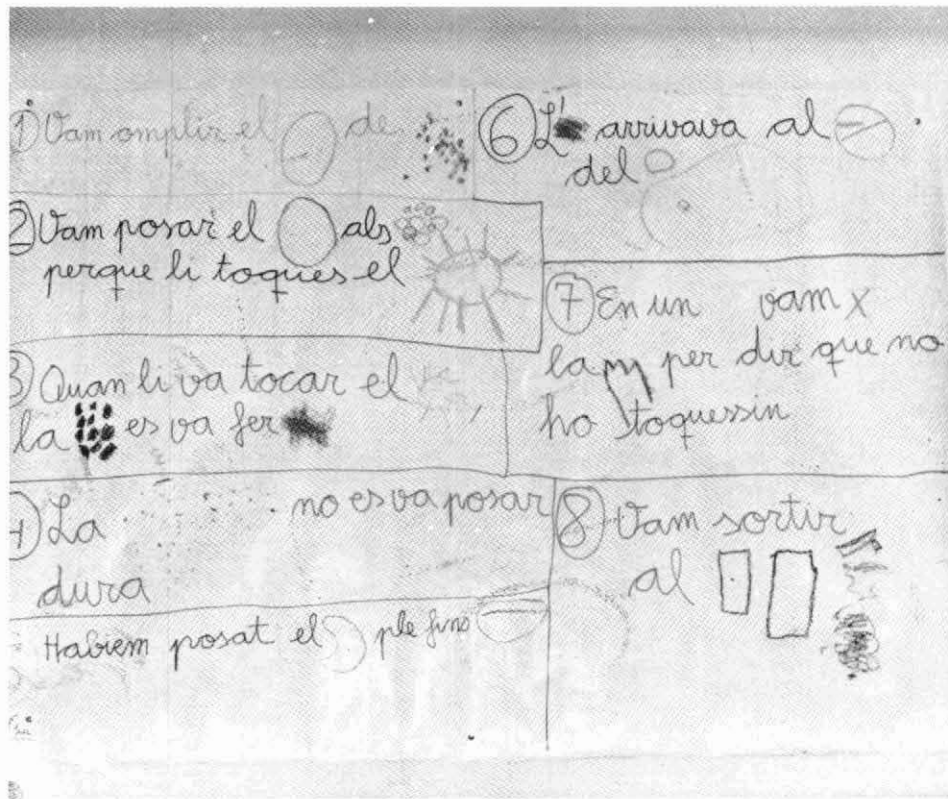 1 Vam omplir el de
2 Vam posar el als
perque li toques el
3 Quan li va tocar el
la es va fer
4 La no es va posar
dura
Habiem posat el ple fins
6 L' arrivava al
del
7 En un vam x
la per dir que no
ho toquessin
8 Vam sortir
al